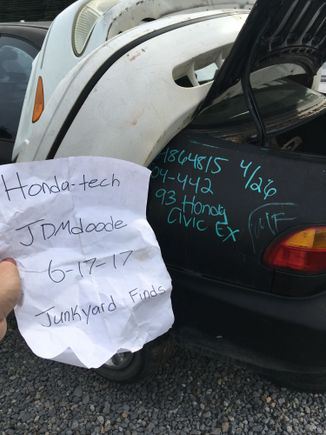 Honda-tech
JDMdoode
6-17-17
Junkyard Finds
1864815 4/26
04-442
93 Honda
Civic EX